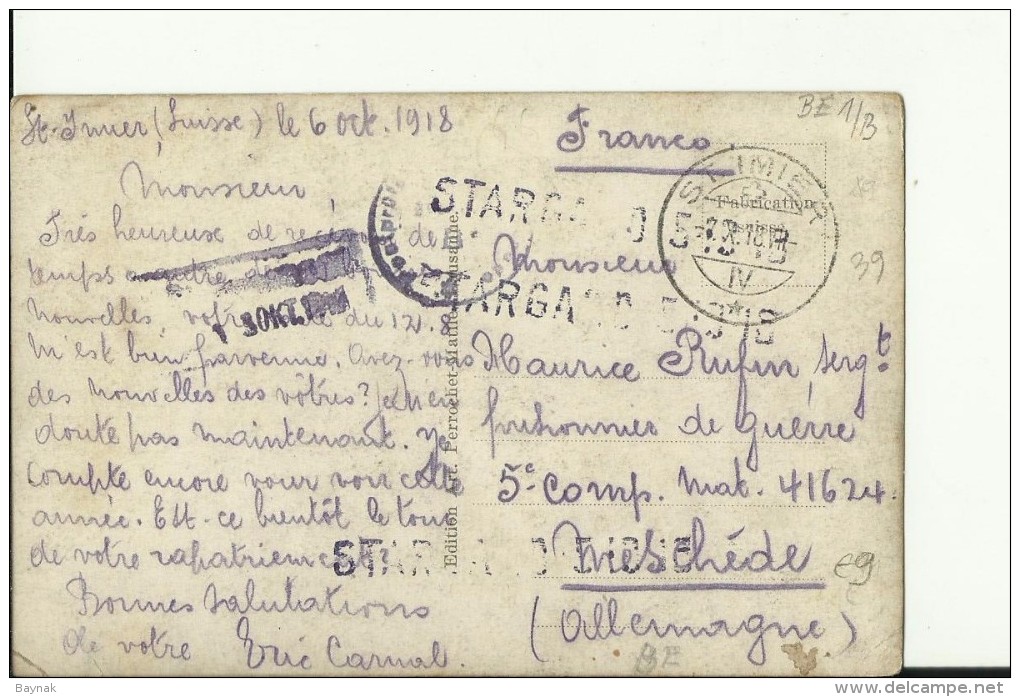 St-Imier (Suisse) le 6 oct. 1918
Monsieur,
Très heureuse de de
temps
nouvelles, votre du 12.8
m'est bien parvenue. Avez-vous
des nouvelles des vôtres? Je n'en
doute pas maintenant. Je
compte encore vous voir cette
année. Est-ce bientôt le tour
de votre rapatriement?
Bonnes salutations
de votre Eric Carnal.
Edition Art. Perrochet-Matile, Lausanne.
Franco
BE 1/B
ST. IMIER
Fabrication
IV
STARGA D
39
Monsieur
STARGA D
OKT.
Maurice Rufin, sergt
prisonnier de guerre
5e Comp. Mat. 41624.
STAR
Meschède
(Allemagne)
€9
BE
Baynak
www.delcampe.net